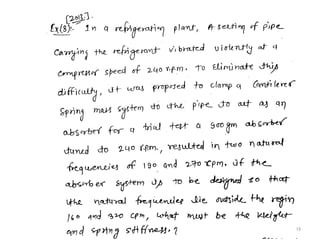 [2013].
Ex(8):- In a refrigerating plant, A section of pipe
Carrying the refrigerant vibrated violently at a
compressor speed of 240 rpm. To Eliminate this
difficulty, it was proposed to clamp a Cantilever
Spring mass system to the pipe to act as an
absorber for a trial test a 900gm absorber
tuned to 240 rpm, resulted in two natural
frequencies of 190 and 270 rpm. if the
absorber system is to be designed so that
the natural frequencies lie outside the region
160 and 320 cpm, what must be the weight
and spring stiffness.?